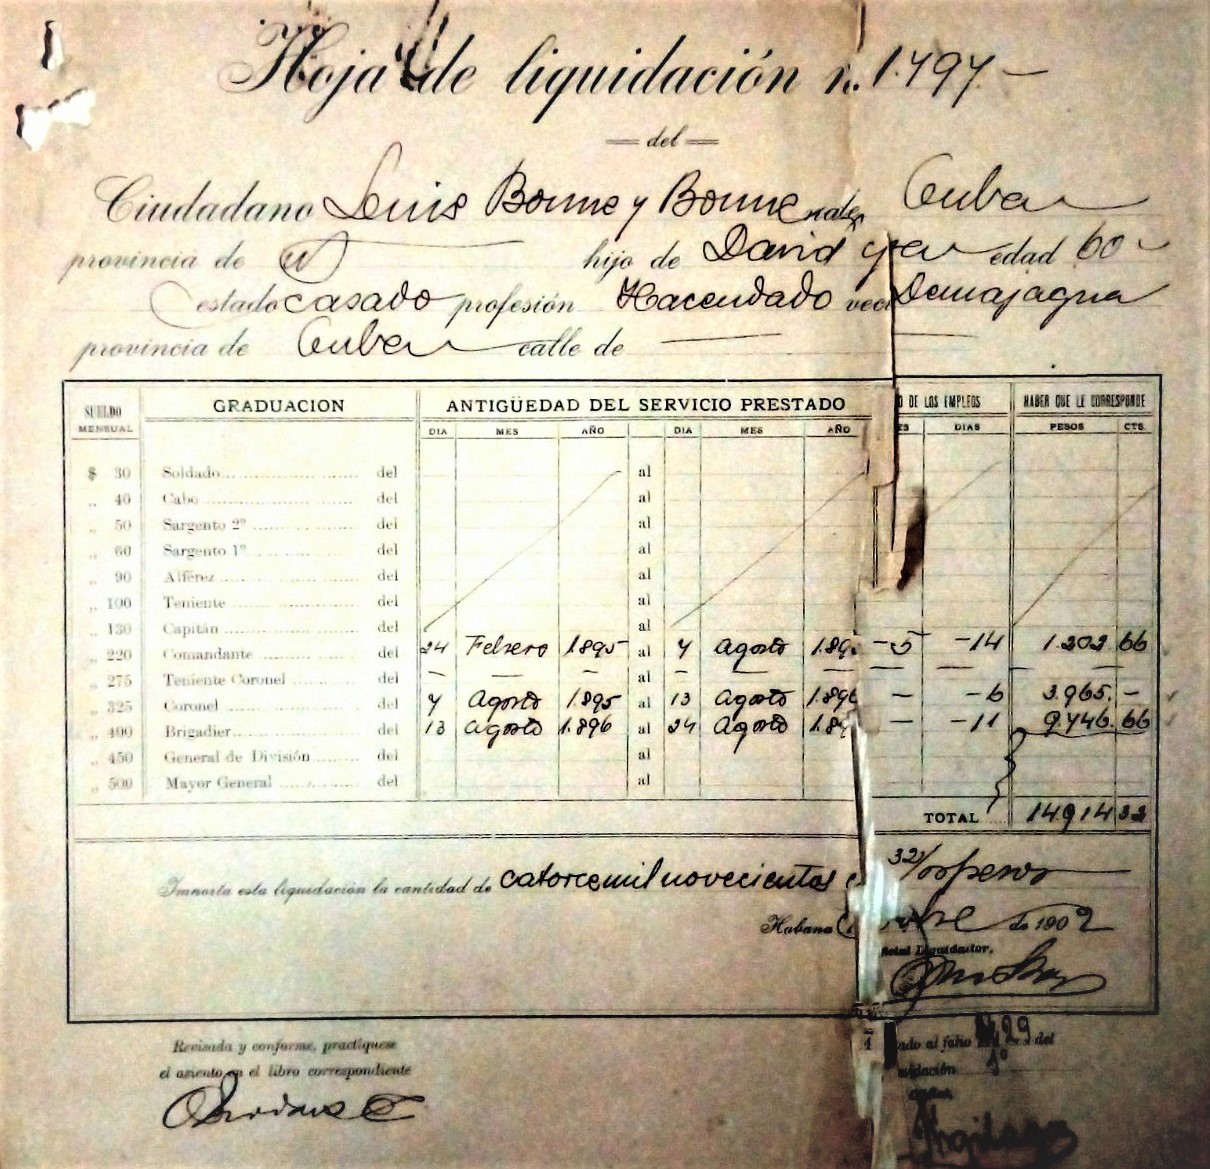 Hoja de liquidación n. 1.797-
del
Ciudadano Luis Bonne y Bonne Cuba
provincia de hijo de David edad 60
estado casado profesión Hacendado Demajagua
provincia de Cuba calle de
SUELDO MENSUAL GRADUACION ANTIGÜEDAD DEL SERVICIO PRESTADO O DE LOS EMPLEOS HABER QUE LE CORRESPONDE
DIA MES AÑO DIA MES AÑO ES DIAS PESOS CTS.
$ 30 Soldado del al
„ 40 Cabo del al
„ 50 Sargento 2º del al
„ 60 Sargento 1º del al
„ 90 Alférez del al
„ 100 Teniente del al
„ 130 Capitán del al
„ 220 Comandante del 24 Febrero 1.895 al 7 Agosto 1.89 - 5 - 14 1.202 66
„ 275 Teniente Coronel del — — — al — — — — — —
„ 325 Coronel del 7 Agosto 1.895 al 13 Agosto 1.896 — - 6 3.965. —
„ 400 Brigadier del 13 Agosto 1.896 al 24 Agosto 1.89 — - 11 9.746. 66
„ 450 General de División del al
„ 500 Mayor General del al
TOTAL 14.914 32
Importa esta liquidación la cantidad de catorce mil novecientos 32/00 pesos
Habana bre de 1902
Liquidador,
Revisada y conforme, practíquese
el asiento en el libro correspondiente
ado al folio 29 del
1º